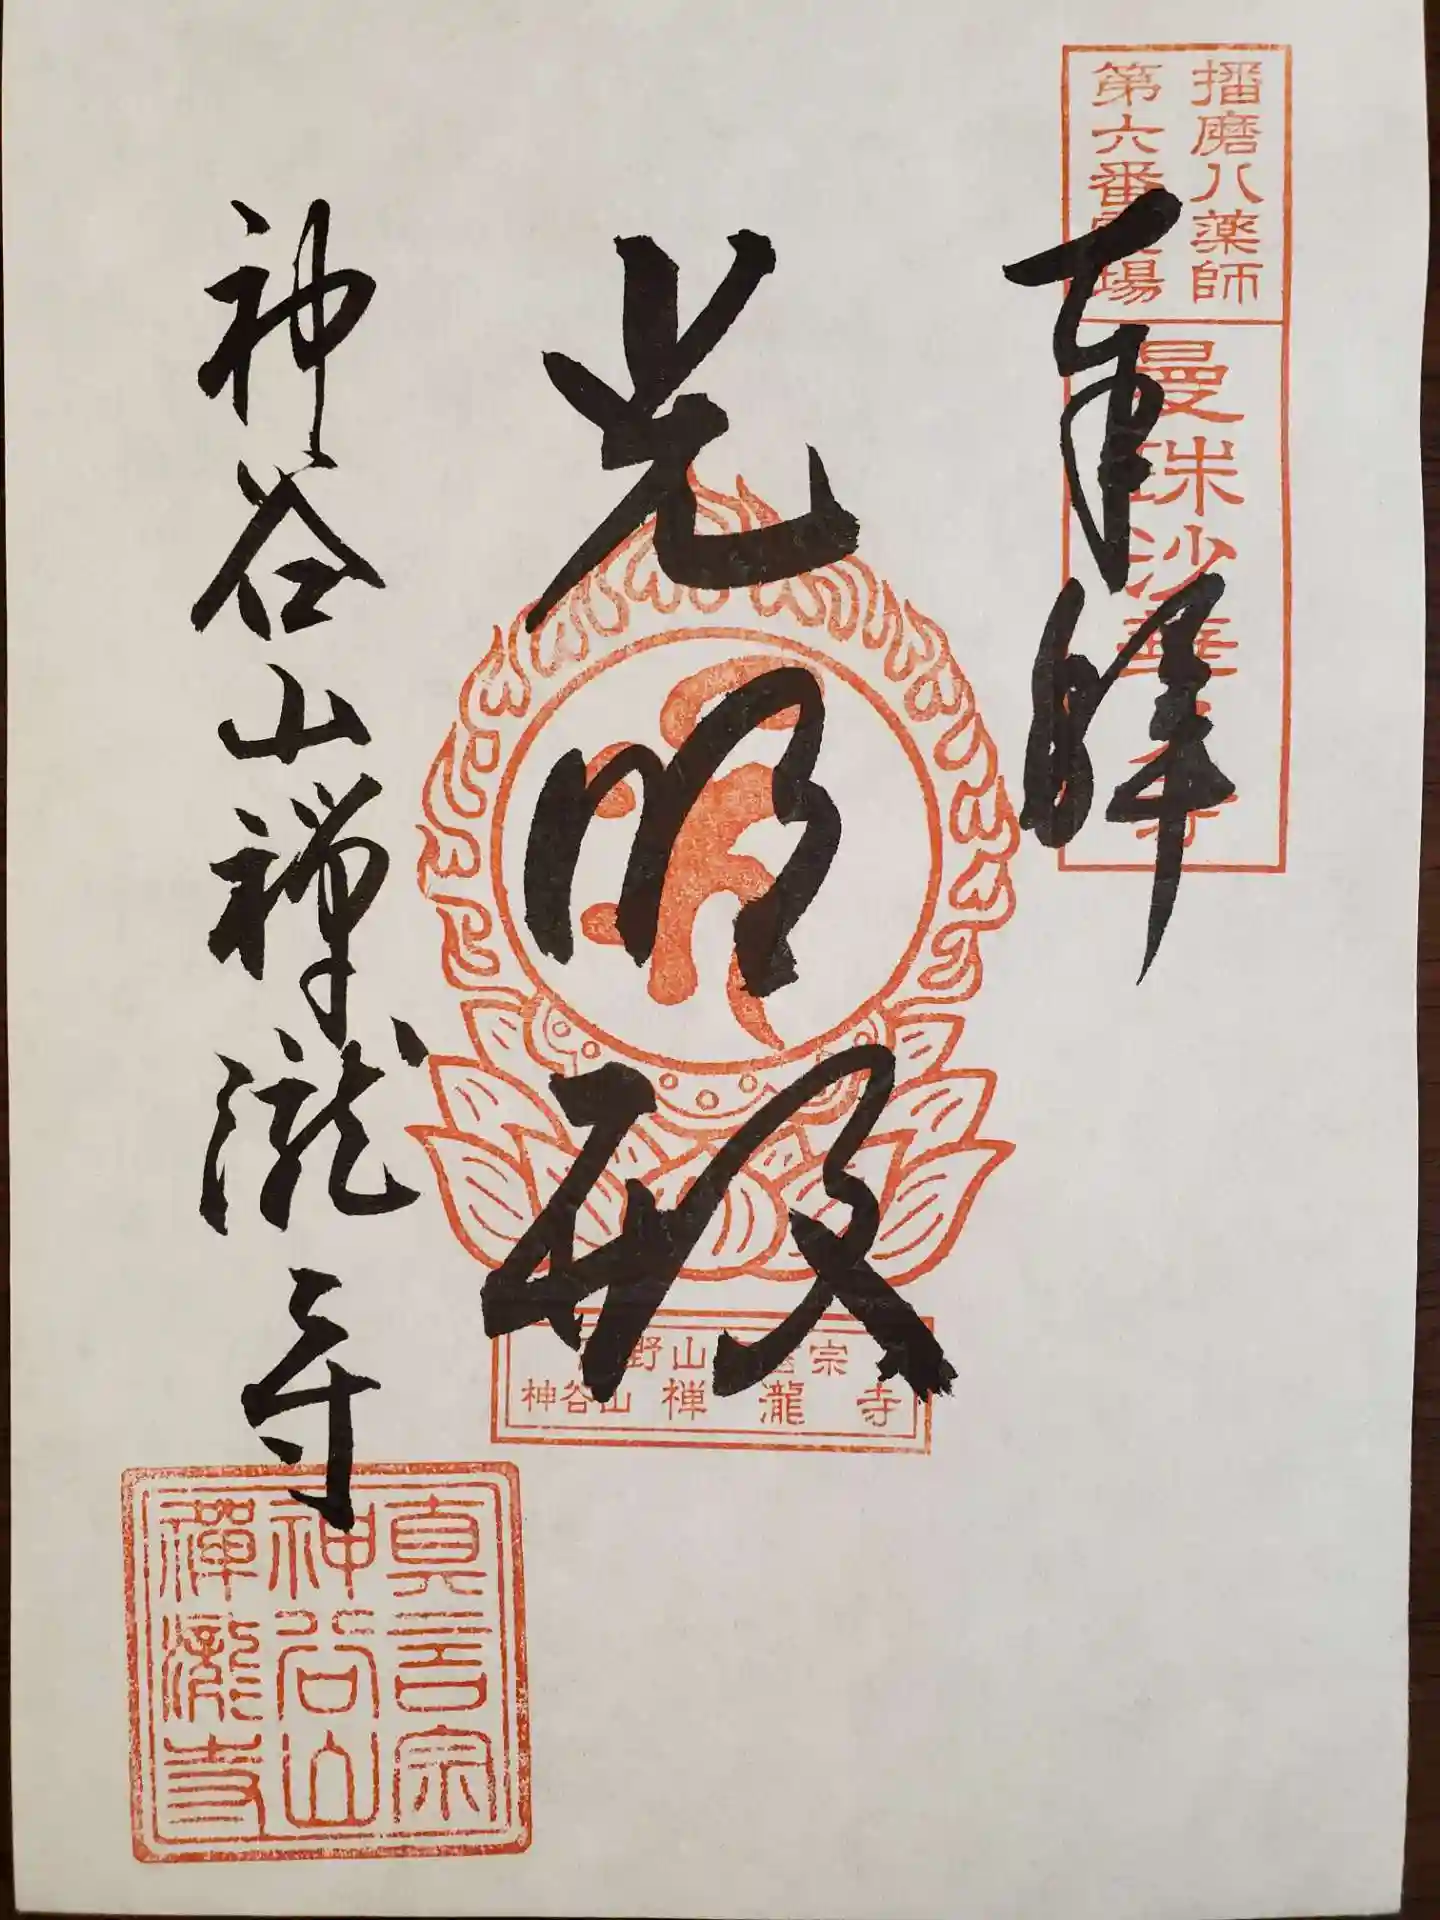 播磨八薬師
第六番霊場
曼珠沙華の寺
奉拝
光明殿
高野山真言宗
神谷山 禅瀧寺
神谷山禅瀧寺
真言宗
神谷山
禪瀧寺